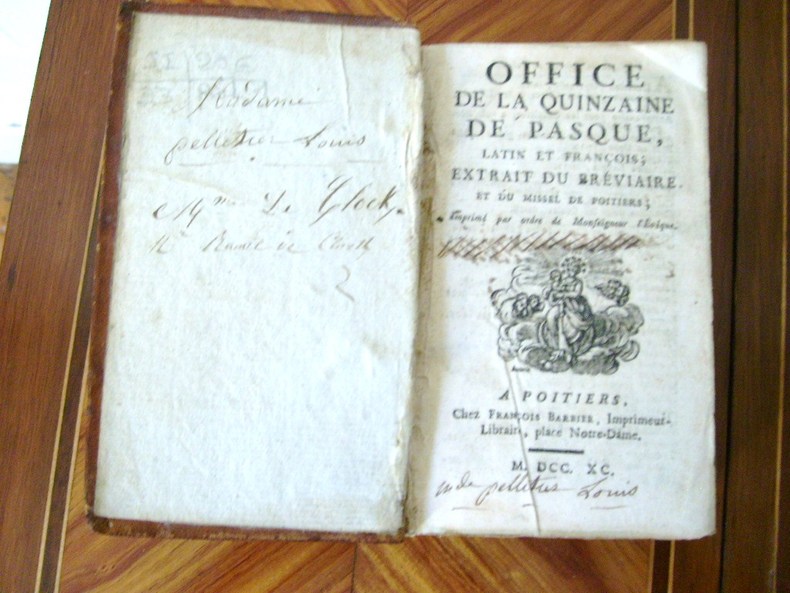 Madame
pelletier Louis
Mme De Clock
Mr de
OFFICE
DE LA QUINZAINE
DE PASQUE,
LATIN ET FRANÇOIS;
EXTRAIT DU BRÉVIAIRE.
ET DU MISSEL DE POITIERS;
Imprimé par ordre de Monseigneur l'Evêque.
A POITIERS,
Chez FRANÇOIS BARBIER, Imprimeur-
Libraire, place Notre-Dame.
M. DCC. XC.
mde pelletier Louis